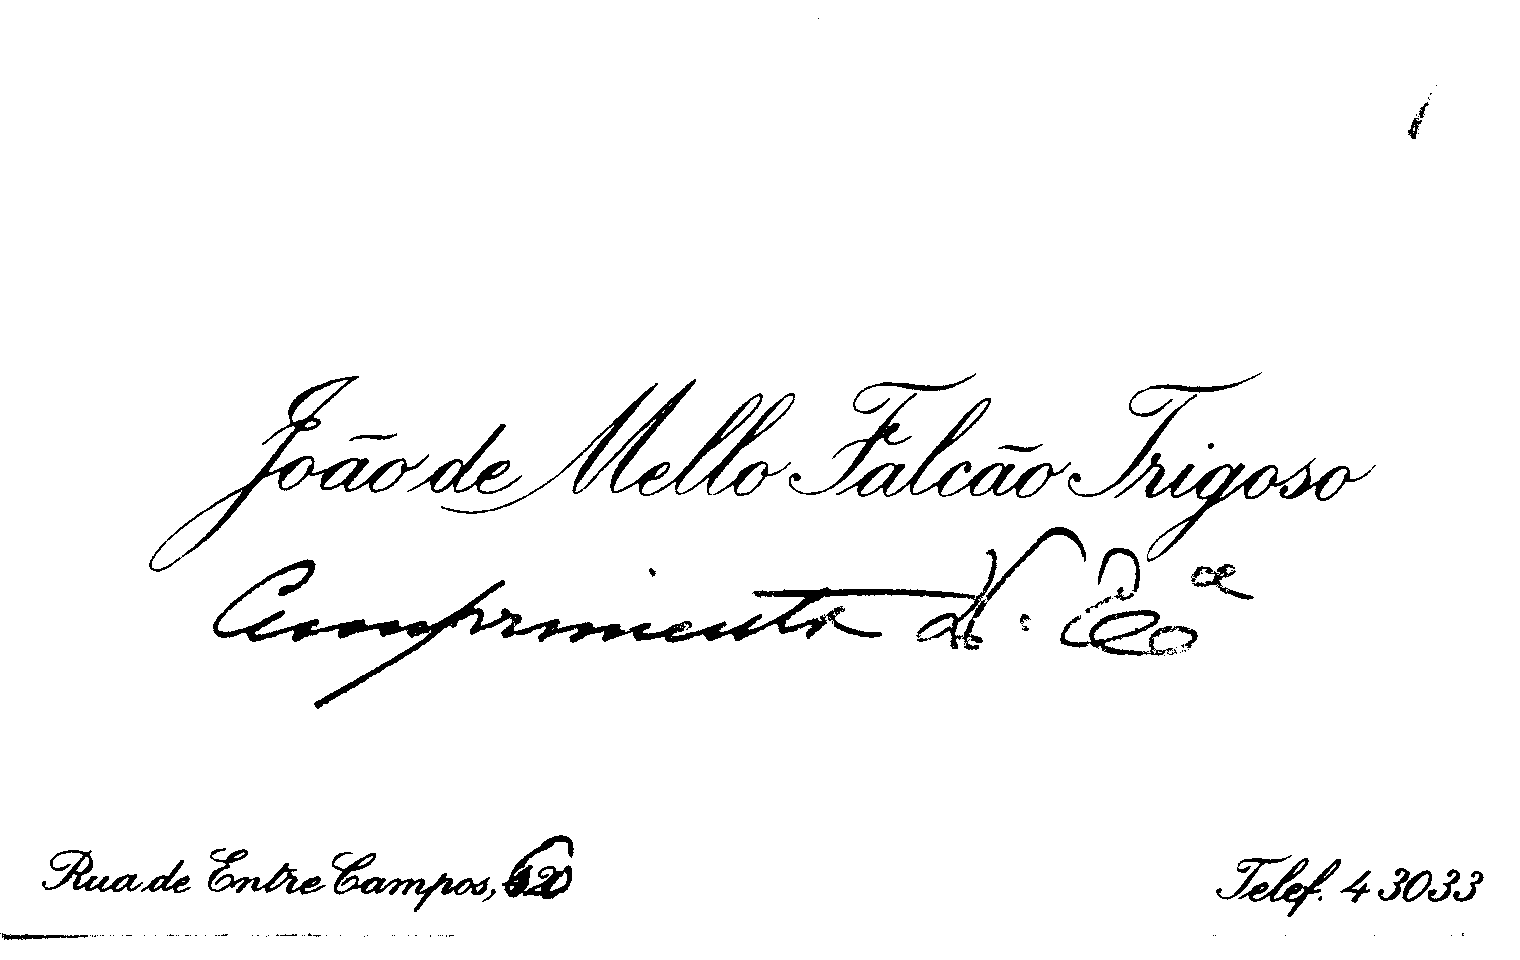 João de Mello Falcão Trigoso
Cumprimenta V. Exª
Rua de Entre Campos,
Telef. 4 3033